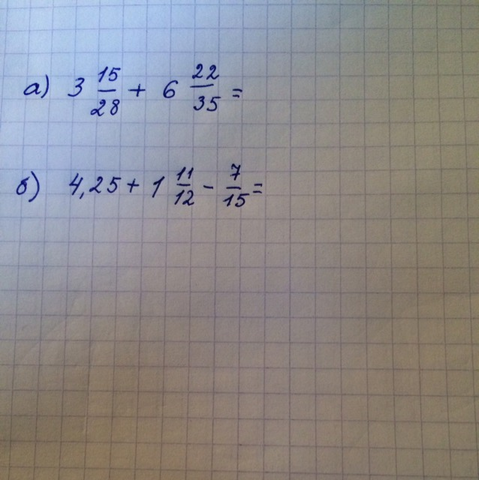 а) 3 15/28 + 6 22/35 =
б) 4,25 + 1 11/12 - 7/15 =